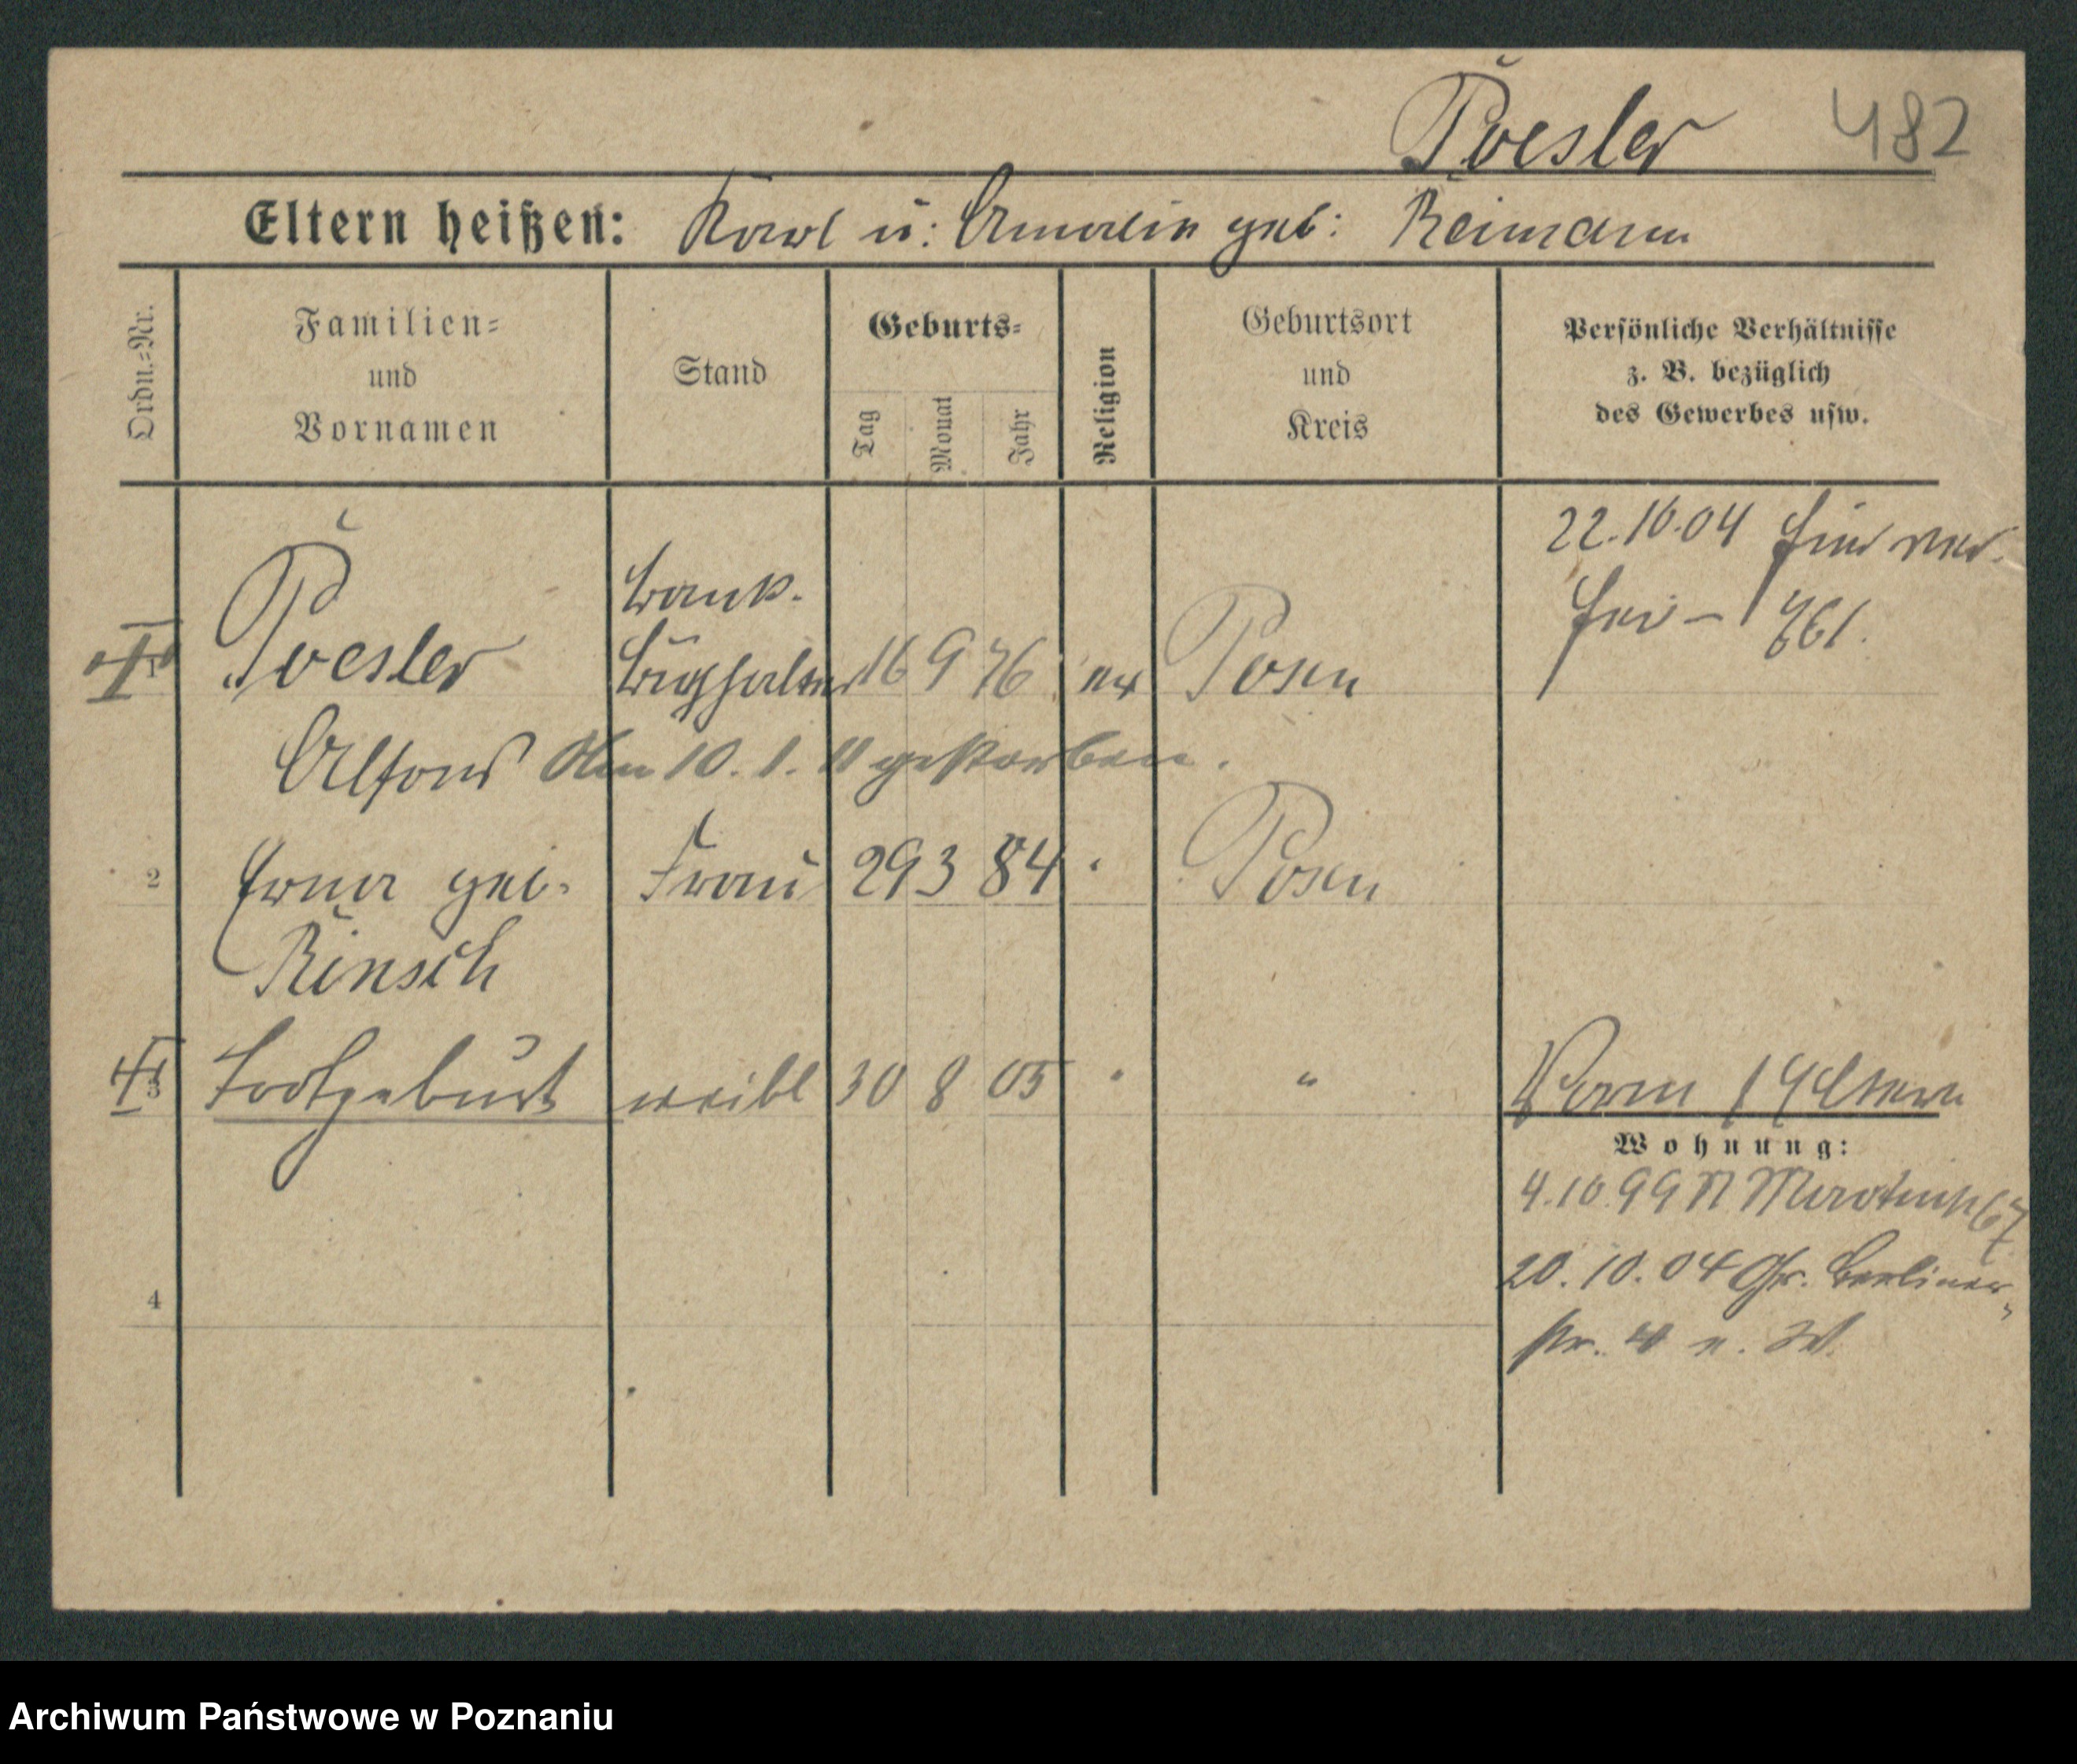 Poesler 482
Eltern heißen: Karl u: Amalie geb: Reimann
Ordn.=Nr.
Familien=
und
Vornamen
Stand
Geburts=
Tag
Monat
Jahr
Religion
Geburtsort
und
Kreis
Persönliche Verhältnisse
z. B. bezüglich
des Gewerbes usw.
22.10.04 hier ver.
hei – 761.
1 Poesler Bank-
buchhalter 16 9 76 ev Posen
Alfons Am 10. 1. 11 gestorben.
2 Erna geb. Frau 29 3 84 " Posen
Rinsch
3 Todtgeburt weibl 30 8 05 " " Vorm / Eltern
Wohnung:
4.10.99 N 67
20.10.04 Gr. Berliner-
str. n. W.
4
Archiwum Państwowe w Poznaniu